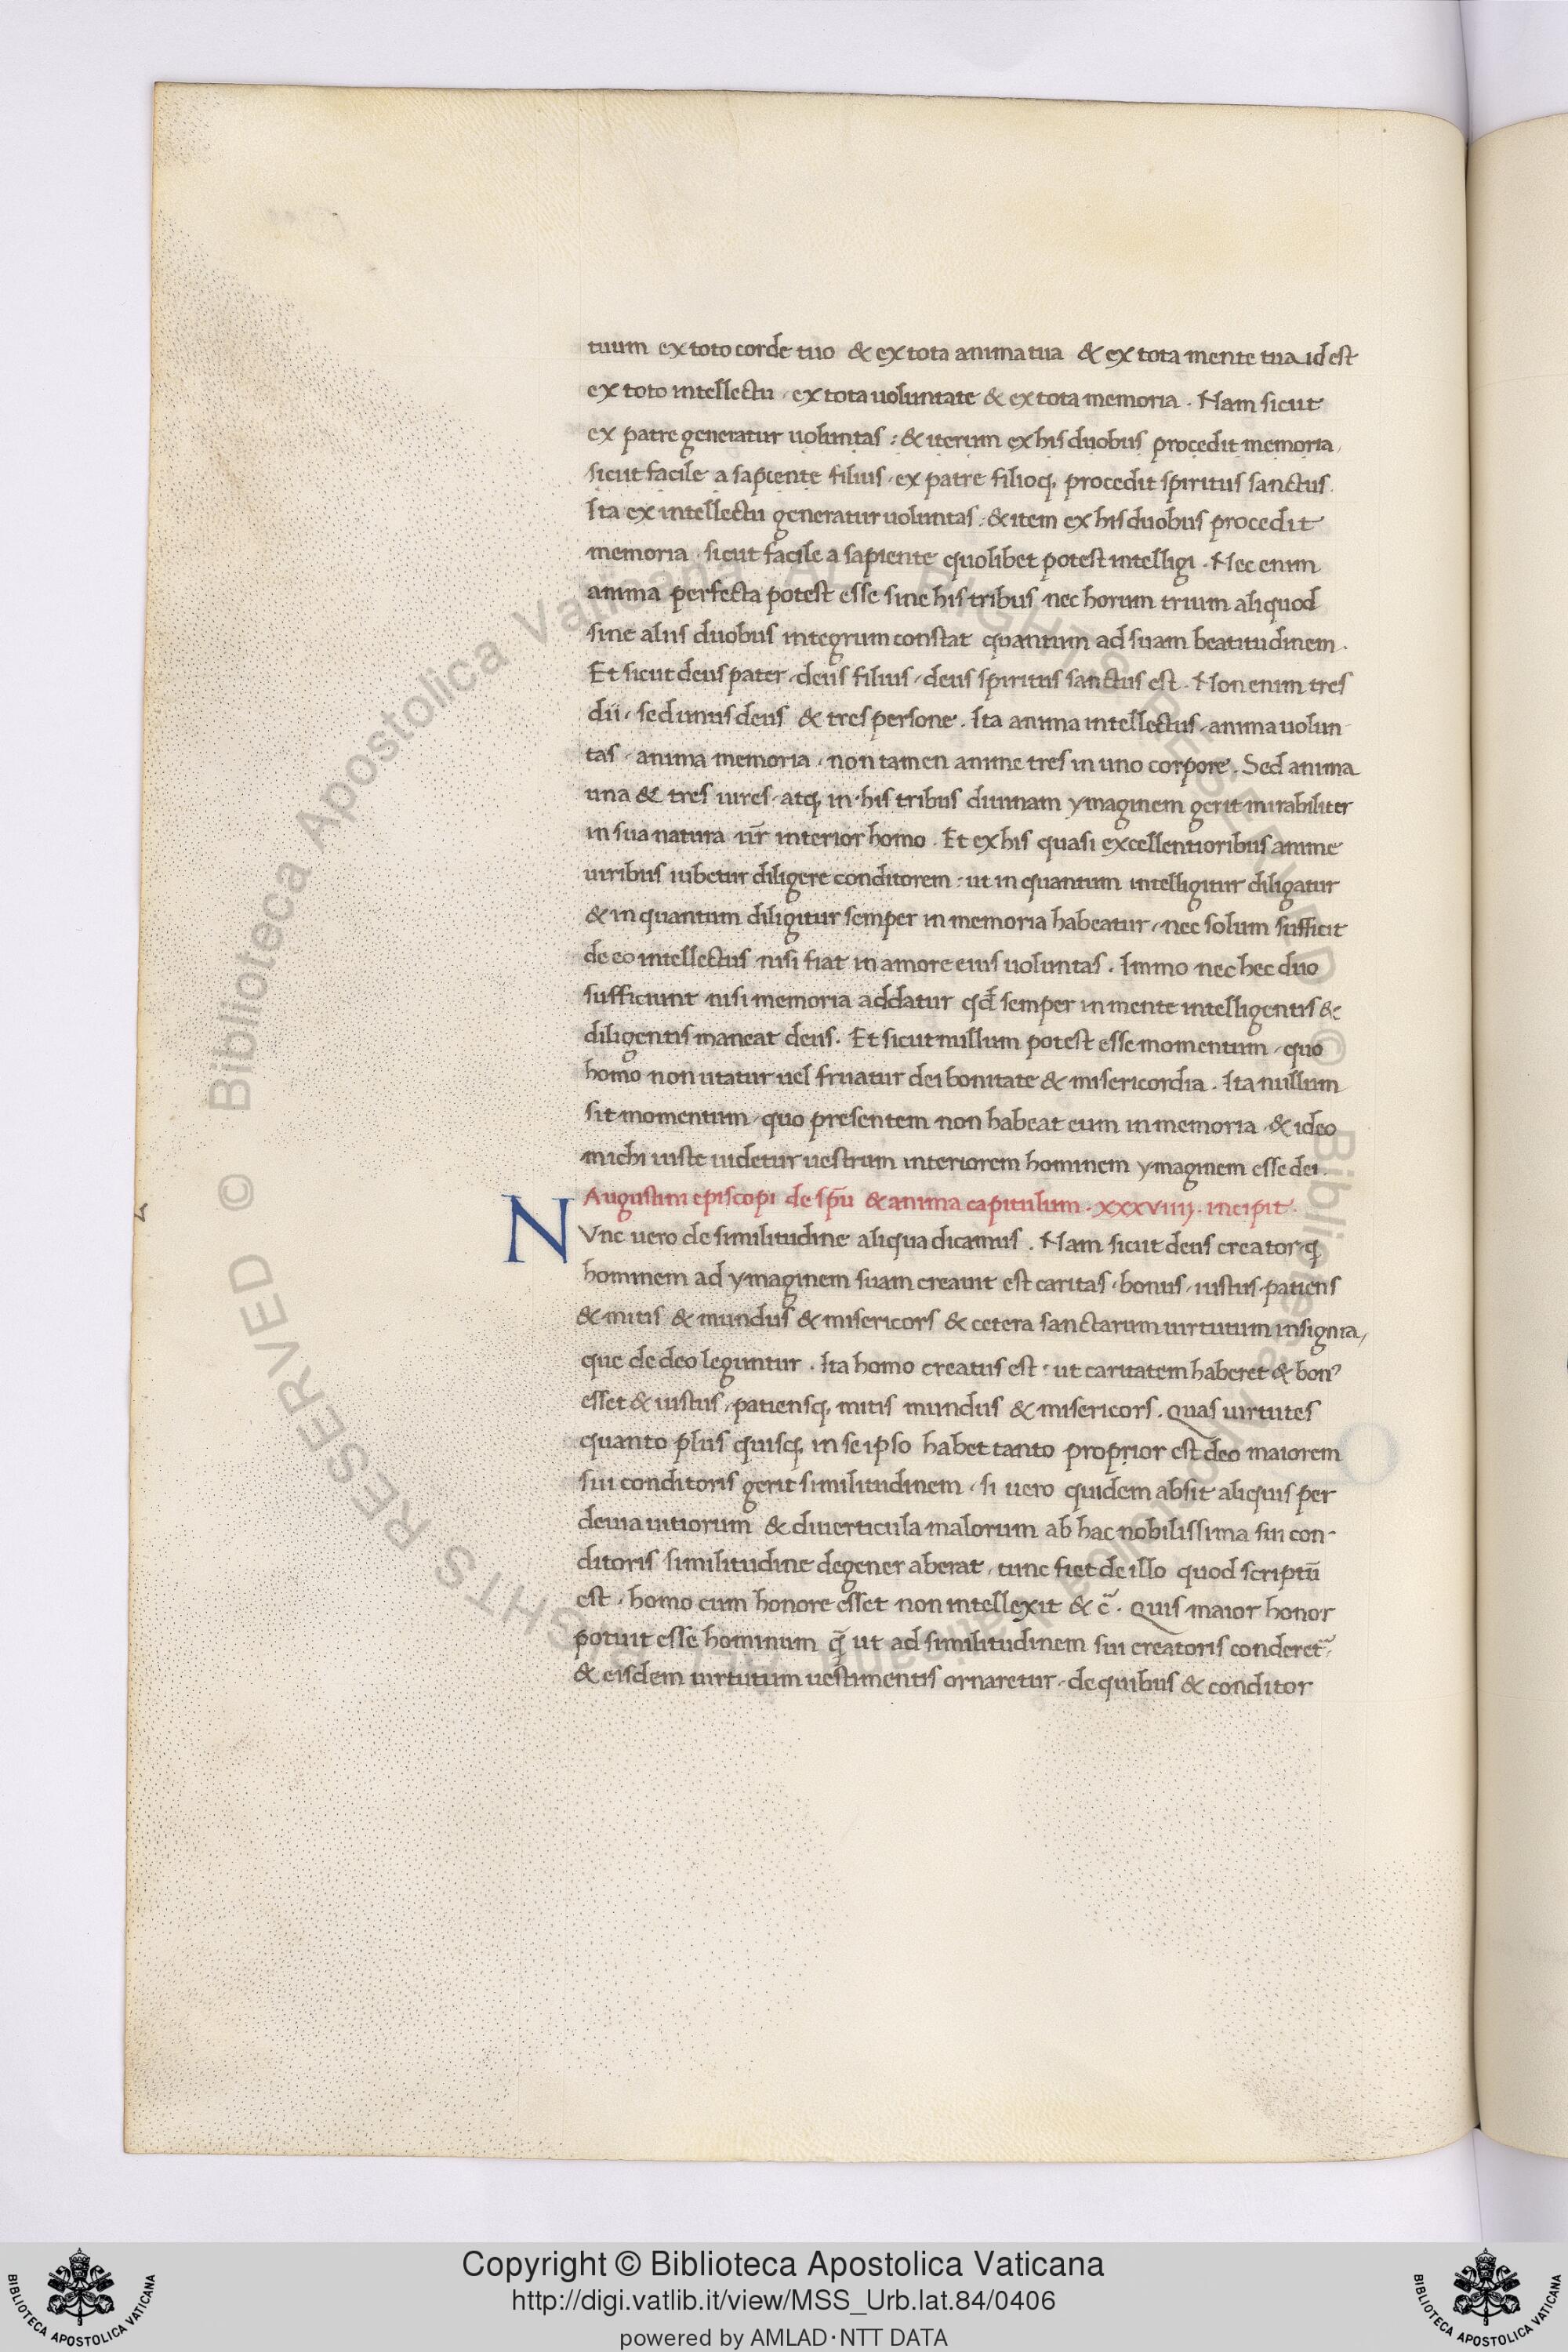 tuum ex toto corde tuo & ex tota anima tua & ex tota mente tua id est
ex toto intellectu, ex tota uoluntate & ex tota memoria. Nam sicut
ex patre generatur uoluntas: & iterum ex his duobus procedit memoria,
sicut facile a sapcente filius, ex patre filioq; procedit spiritus sanctus.
Ita ex intellectu generatur uoluntas: & item ex his duobus procedit
memoria, sicut facile a sapiente quolibet potest intelligi. Nec enim
anima perfecta potest esse sine his tribus nec horum trium aliquod
sine aliis duobus integrum constat quantum ad suam beatitudinem.
Et sicut deus pater, deus filius, deus spiritus sanctus est. Non enim tres
dii, sed unus deus & tres persone. Ita anima intellectus, anima uolun
tas, anima memoria, non tamen anime tres in uno corpore. Sed anima
una & tres uires, atq; in his tribus diuinam ymaginem gerit mirabiliter
in sua natura ur̄ interior homo. Et ex his quasi excellentioribus anime
uiribus iubetur diligere conditorem: ut in quantum intelligitur diligatur
& in quantum diligitur semper in memoria habeatur, nec solum sufficit
de eo intellectus nisi fiat in amore eius uoluntas. Immo nec hec duo
sufficiunt nisi memoria addatur qd̄ semper in mente intelligentis &
diligentis maneat deus. Et sicut nullum potest esse momentum, quo
homo non utatur uel fruatur dei bonitate & misericordia. Ita nullum
sit momentum, quo presentem non habeat eum in memoria, & ideo
michi iuste uidetur uestrum interiorem hominem ymaginem esse dei.
Augustini episcopi de sp̄u & anima capitulum. xxxviiij. incipit.
NVnc uero de similitudine aliqua dicamus. Nam sicut deus creator, q
hominem ad ymaginem suam creauit est caritas, bonus, iustus, patiens
& mitis & mundus & misericors & cetera sanctarum uirtutum insignia,
que de deo leguntur. Ita homo creatus est: ut caritatem haberet & bonꝰ
esset & iustus, patiensq; mitis mundus & misericors. Quas uirtutes
quanto plus quisq; in se ipso habet tanto proprior est deo maiorem
sui conditoris gerit similitudinem, si uero quidem absit aliquis per
deuia uitiorum & diuerticula malorum ab hac nobilissima sui con-
ditoris similitudine degener aberat, tunc fiet de illo quod scriptū
est, homo cum honore esset non intellexit & c̃. Quis maior honor
potuit esse hominum q̃ ut ad similitudinem sui creatoris conderet᷑,
& eisdem uirtutum uestimentis ornaretur, de quibus & conditor
© Biblioteca Apostolica Vaticana ALL RIGHTS RESERVED © Biblioteca Apostolica Vaticana ALL RIGHTS RESERVED
Copyright © Biblioteca Apostolica Vaticana
http://digi.vatlib.it/view/MSS_Urb.lat.84/0406
powered by AMLAD·NTT DATA
BIBLIOTECA APOSTOLICA VATICANA
BIBLIOTECA APOSTOLICA VATICANA